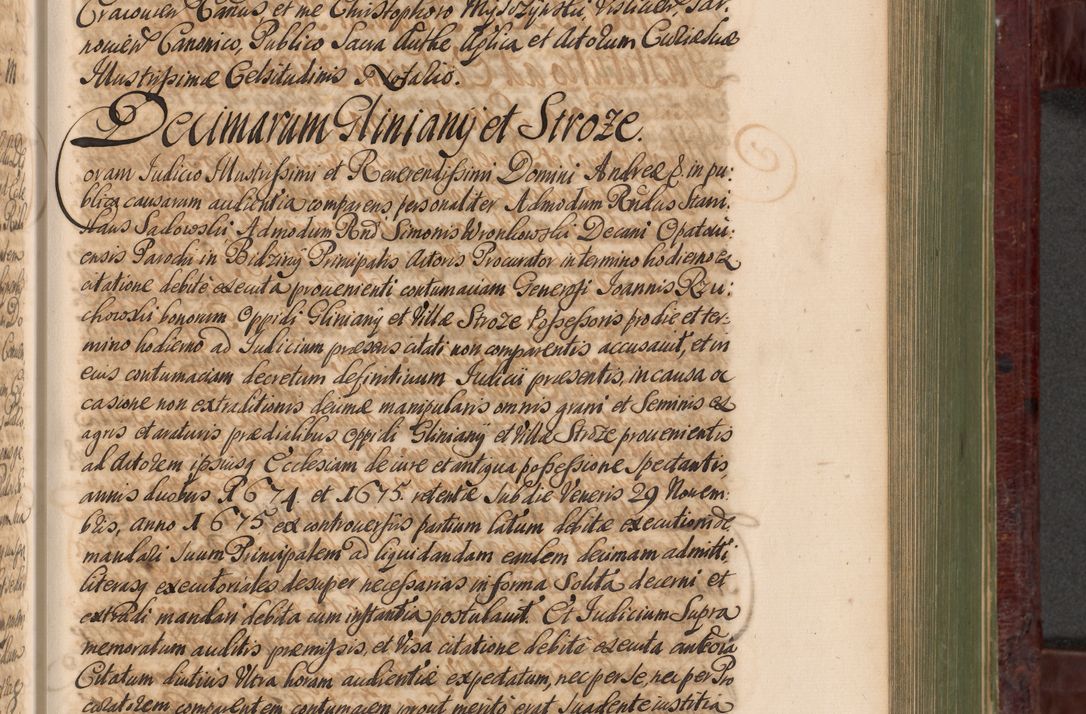 Cracovien Canus et me Christophoro Myszynski, Visticien, Sar:
novien Canonico, Publico Sacra Authe Aplica et Actorum Curiæ Suæ
Illustrissimæ Celsitudinis Notario.
Decimarum Gliniany et Stroze.
oram Iudicio Illustrissimi et Reverendissimi Domini Andreæ &. in pu:
blica causarum audientia comparens personaliter Admodum Rndus Stani
slaus Sadowski Admodum Rnd Simonis Wronkowski Decani Opatoui:
ensis Parochi in Bidziny Principalis Actoris Procurator in termino hodierno ex
citatione debitè executa prouenienti contumaciam Generosi Joannis Rzu:
chowski bonorum Oppidi Gliniany et Villæ Stroze Possessoris pro die et ter:
mino hodierno ad Iudicium præsens citati non comparentis accusauit, et in
eius contumaciam decretum definitiuum Iudicii præsentis, in causa oc
casione non extraditionis decimæ manipularis omnis grani et Seminis ex
agris et araturis prædialibus oppidi Gliniany et Villæ Stroze prouenientis
ad Actorem ipsiusq Ecclesiam de iure et antiqua possessione Spectantis
annis duobus 1674 et 1675 retentæ Sub die Veneris 29 Nouem:
bris, anno 1675 ex controuersiis partium latum debitæ executioni de
mandari Suum Principalem ad liquidandam eandem decimam admitti,
literasq executoriales desuper necessarias in forma Solita decerni et
extradi mandari debita cum instantia postulauit. Et Iudicium Supra
memoratum auditis præmissis, et Visa citatione debitè executa
Citatum diutius Vltra horam audientiæ expectatum, nec per se, nec per Pro
curatorem comparentem contumacem prout merito erat Suadente iustitia